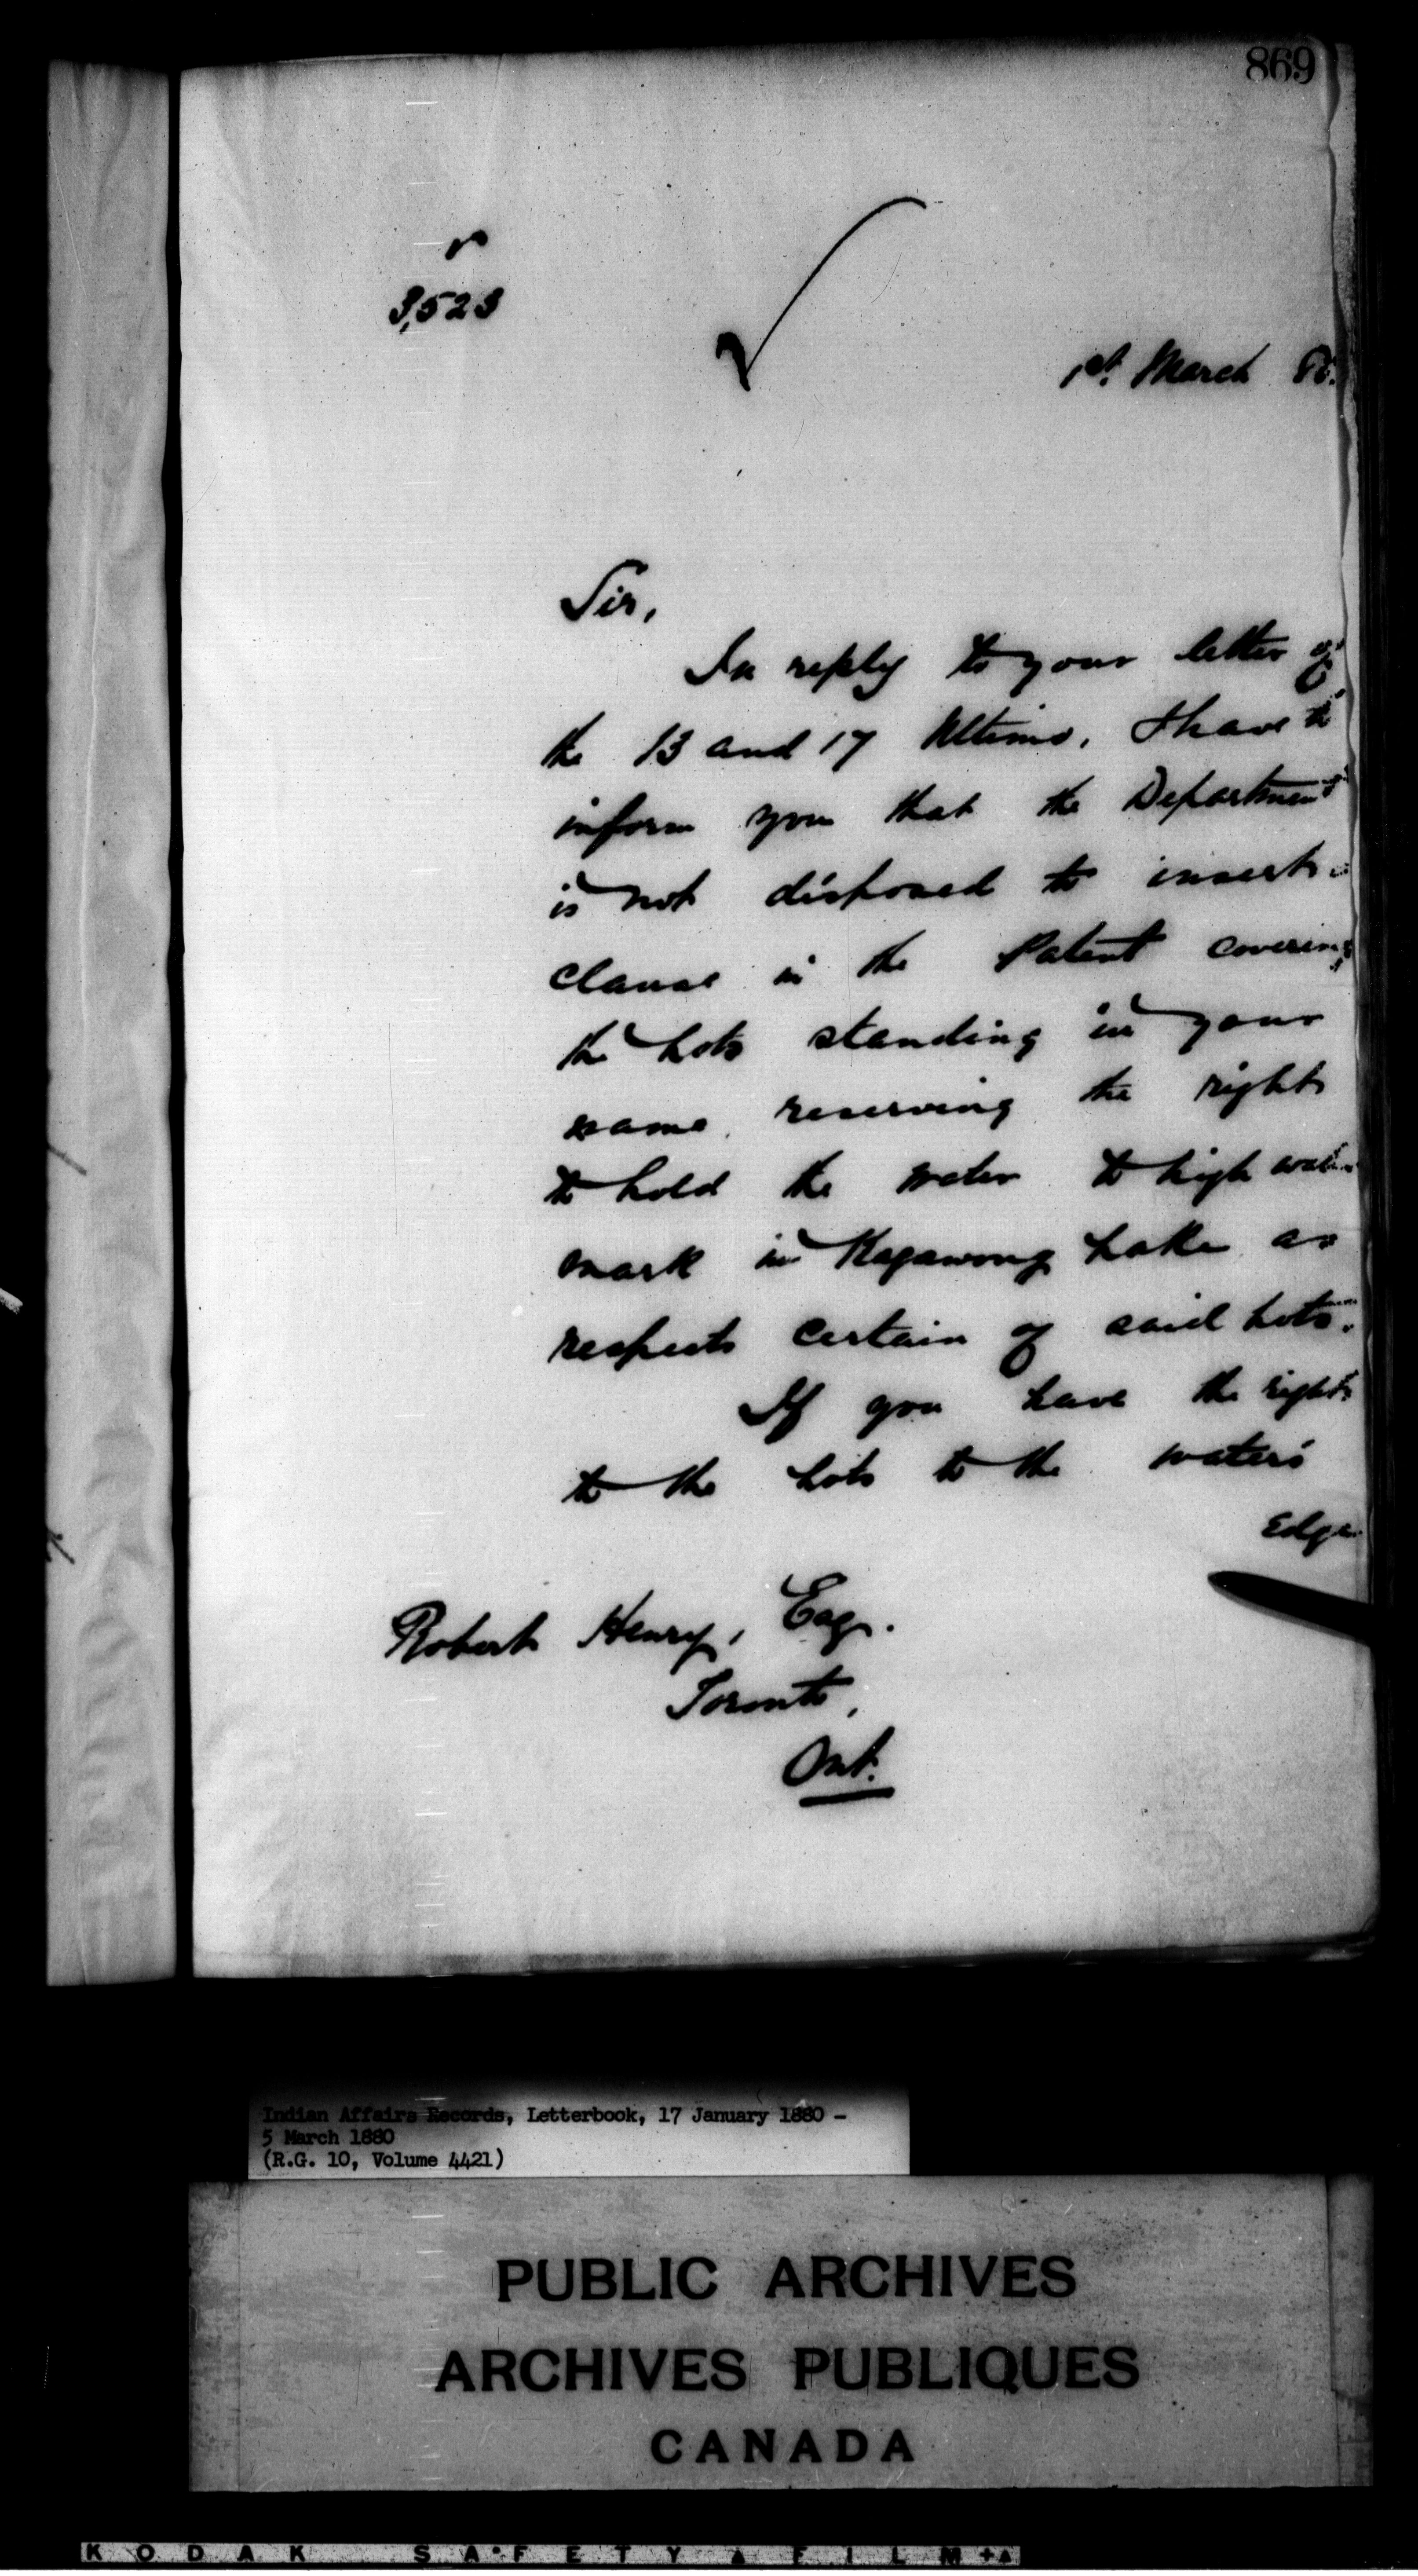 869
3,523
1st. March 80.
Sir,
In reply to your letter of
the 13 and 17 Ultimo, I have to
inform you that the Department
is not disposed to insert a
clause in the Patent covering
the Lots standing in your
name, reserving the right
to hold the water to high water
mark in Kagawong Lake as
respects certain of said Lots.
If you have the right
to the Lots to the water's
Edge
Robert Henry, Esq.
Toronto,
Ont.
Indian Affairs Records, Letterbook, 17 January 1880 -
5 March 1880
(R.G. 10, Volume 4421)
PUBLIC ARCHIVES
ARCHIVES PUBLIQUES
CANADA
KODAK SAFETY FILM